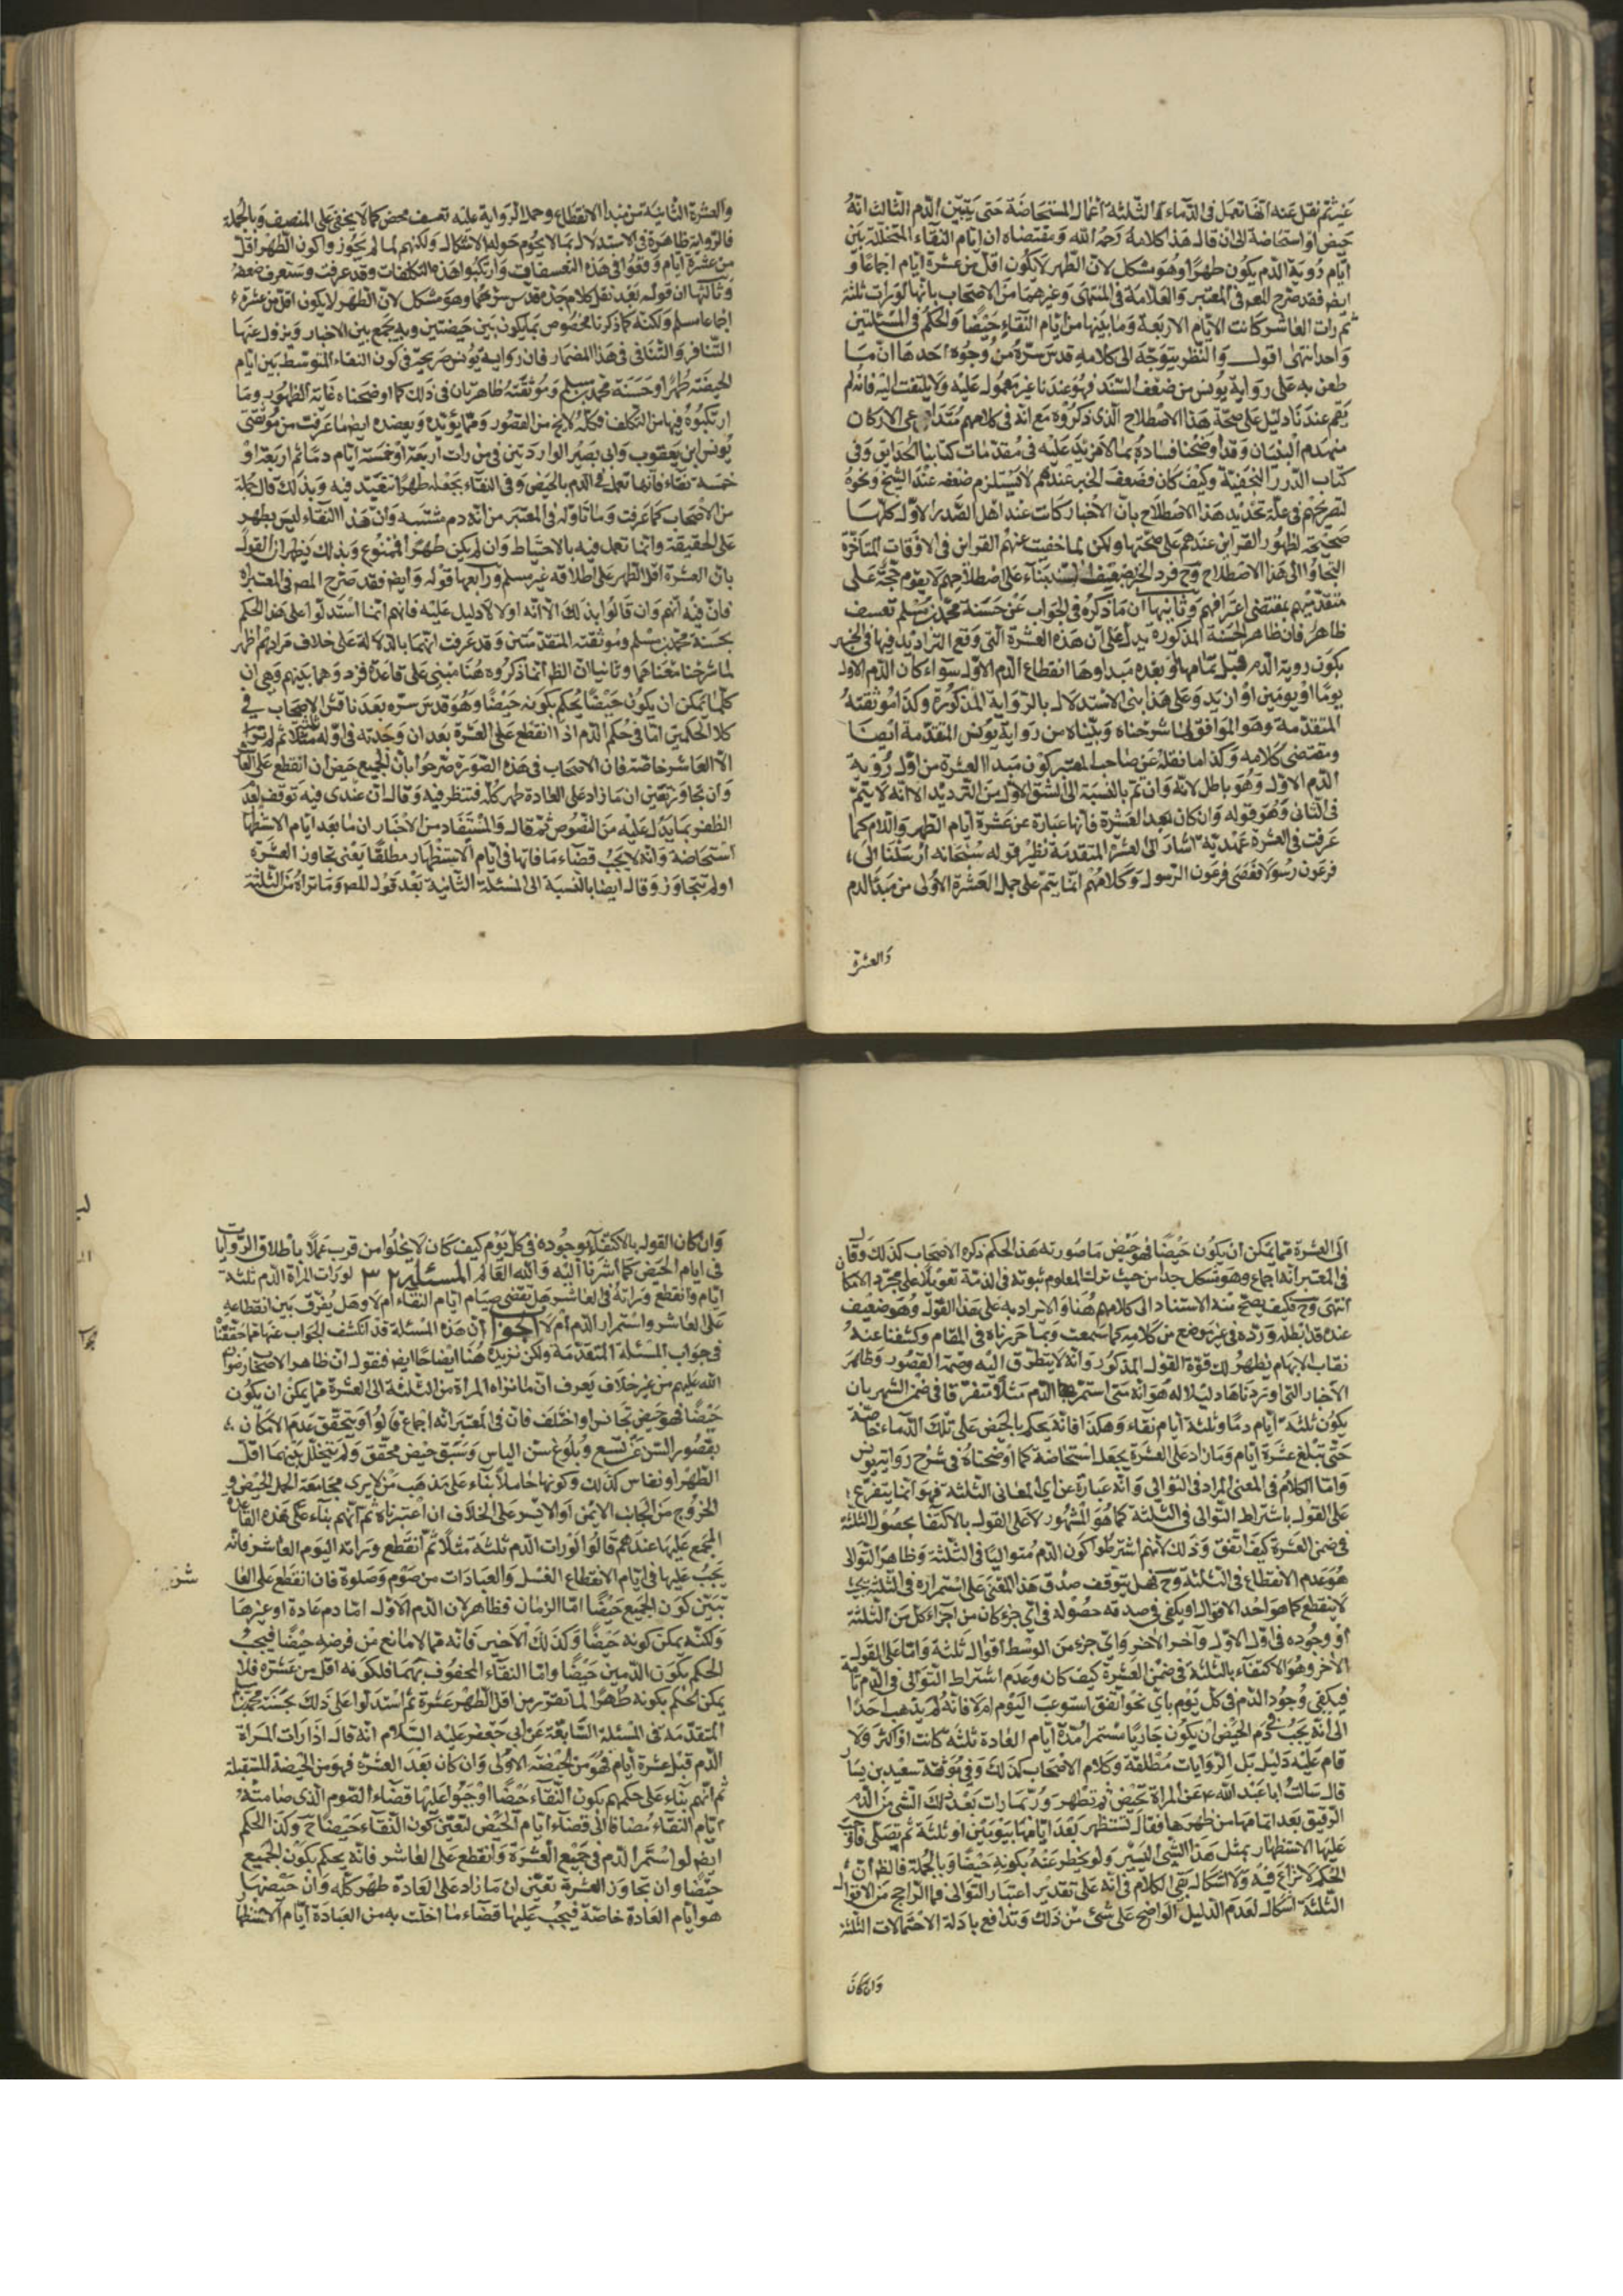 عنه ثم نقل عنه انها تعمل في الدماء الثلثة اعمال المستحاضة حتى يتبين الدم الثالث انه
حيض او استحاضة الى ان قال هذا كلامه رحمه الله ومقتضاه ان ايام النقاء المتخللة بين
ايام رؤية الدم يكون طهرا وهو مشكل لان الطهر لا يكون اقل من عشرة ايام اجماعا و
ايضا فقد صرح المص في المعتبر والعلامة في المنتهى وغيرهما من الاصحاب بانها لو رات ثلثة
ثم رات العاشر كانت الايام الاربعة وما بينها من ايام النقاء حيضا والحكم في المسئلتين
واحد انتهى اقول والنظر يتوجه الى كلامه قدس سره من وجوه احدها ان ما
طعن به على رواية يونس من ضعف السند فهو عندنا غير معمول عليه ولا يلتفت اليه فانه لم
يقم عندنا دليل على صحة هذا الاصطلاح الذي ذكروه مع انه في كلامهم متداعي الاركان
منهدم البنيان وقد اوضحنا فساده بما لا مزيد عليه في مقدمات كتابنا الحدايق وفي
كتاب الدرر النجفية وكيف كان فضعف الخبر عندهم لا يستلزم ضعفه عند الشيخ ونحوه
لتصريحهم في علة تجديد هذا الاصطلاح بان الاخبار كانت عند اهل الصدر الاول كلها
صحيحة لظهور القراين عندهم على صحتها ولكن لما خفيت عنهم القراين في الاوقات المتاخرة
التجاوا الى هذا الاصطلاح وح فرد الخبر بضعف السند بناء على اصطلاحهم لا يقوم حجة على
متقدميهم بمقتضى اعترافهم وثانيها ان ما ذكره في الجواب عن حسنة محمد بن مسلم تعسف
ظاهر فان ظاهر الحسنة المذكورة يدل على ان هذه العشرة التي وقع الترديد فيها في الخبر
بكون روية الدم قبل تمامها او بعده مبداوها انقطاع الدم الاول سواء كان الدم الاول
يوما او يومين او ازيد وعلى هذا بنى الاستدلال بالرواية المذكورة وكذا موثقته
المتقدمة وهو الموافق لما شرحناه وبيناه من رواية يونس المتقدمة ايضا
ومقتضى كلامه وكذا ما نقله عن صاحب المعتبر كون مبدا العشرة من اول رؤية
الدم الاول وهو باطل لانه وان تم بالنسبة الى الشق الاول من الترديد الا انه لا يتم
في الثاني وهو قوله وان كان بعد العشرة فانها عبارة عن عشرة ايام الطهر واللام كما
عرفت في العشرة عهدية اشارة الى العشرة المتقدمة نظير قوله سبحانه ارسلنا الى
فرعون رسولا فعصى فرعون الرسول وكلامهم انما يتم على جعل العشرة الاولى من مبدا الدم
والعشرة
والعشرة الثانية من مبدا الانقطاع وحمل الرواية عليه تعسف محض كما لا يخفى على المنصف وبالجملة
فالرواية ظاهرة في الاستدلال بما لا يحوم حوله الاشكال ولكنهم لما لم يجوزوا كون الطهر اقل
من عشرة ايام وقعوا في هذه التعسفات وارتكبوا هذه التكلفات وقد عرفت وستعرف ضعفه
وثالثها ان قوله بعد نقل كلام جده قدس سرهما وهو مشكل لان الطهر لا يكون اقل من عشرة
اجماعا مسلم ولكنه كما ذكرنا مخصوص بما يكون بين حيضتين وبه يجمع بين الاخبار ويزول عنها
التنافر والتنافي في هذا المضمار فان رواية يونس صريحة في كون النقاء المتوسط بين ايام
الحيضة طهرا وحسنة محمد بن مسلم وموثقته ظاهرتان في ذلك كما اوضحناه غاية الظهور وما
ارتكبوه فيها من التكلف فكله لا يخ من القصور ومما يؤيده ويعضده ايضا ما عرفت من موثقتي
يونس ابن يعقوب وابي بصير الواردتين في من رات اربعة او خمسة ايام دما ثم اربعة او
خمسة نقاء فانها تعمل في الدم بالحيض وفي النقاء بجعله طهرا تتعبد فيه وبذلك قال جملة
من الاصحاب كما عرفت وما تاوله في المعتبر من انه دم مشتبه وان هذا النقاء ليس بطهر
على الحقيقة وانما تعمل فيه بالاحتياط وان لم يكن طهرا فممنوع وبذلك يظهر ان القول
بان العشرة اقل الطهر على اطلاقه غير مسلم ورابعها قوله وايضا فقد صرح المص في المعتبر اه
فان فيه انهم وان قالوا بذلك الا انه اولا لا دليل عليه فانهم انما استدلوا على هذا الحكم
بحسنة محمد بن مسلم وموثقته المتقدمتين وقد عرفت انهما بالدلالة على خلاف مرادهم اظهر
لما شرحنا معناهما وثانيا ان الظ انما ذكروه هنا مبني على قاعدة قررهما بينهم وهي ان
كلما يمكن ان يكون حيضا يحكم بكونه حيضا وهو قدس سره بعد نافش الاصحاب في
كلا الحكمين اما في حكم الدم اذا انقطع على العشرة بعد ان وجدته في اوله ثلثة مثلا ثم لم تره
الا العاشر خاصة فان الاصحاب في هذه الصورة صرحوا بان الجميع حيض ان انقطع على العا
وان تجاوز تعين ان ما زاد على العادة طهر كله فتنظر فيه وقال ان عندي فيه توقف لعد
الظفر بما يدل عليه من النصوص ثم قال والمستفاد من الاخبار ان ما بعد ايام الاستظها
استحاضة وانه لا يجب قضاء ما فاتها في ايام الاستظهار مطلقا يعني تجاوز العشرة
او لم يتجاوز وقال ايضا بالنسبة الى المسئلة الثانية بعد قول المص وما تراه من الثلثة
الى العشرة مما يمكن ان يكون حيضا فهو حيض ما صورته هذا الحكم ذكره الاصحاب كذلك وقال
في المعتبر انه اجماع وهو مشكل جدا من حيث ترك المعلوم ثبوته في الذمة تعويلا على مجرد الامكا
انتهى وح فكيف يصح منه الاستناد الى كلامهم هنا والايراد به على هذا القول وهو ضعيف
عنده قد ابطله ورده في غير موضع من كلامه كما سمعت وبما حررناه في المقام وكشفنا عنه
نقاب الابهام يظهر لك قوة القول المذكور وانه لا يتطرق اليه وصمة القصور وظاهر
الاخبار التي اوردناها دليلا له هو انه متى استمر الدم مثلا متفرقا في ضمن الشهر بان
يكون ثلثة ايام دما وثلثة ايام نقاء وهكذا فانه يحكم بالحيض على تلك الدماء خاصة
حتى تبلغ عشرة ايام وما زاد على العشرة يجعل استحاضة كما اوضحناه في شرح رواية يونس
واما الكلام في المعنى المراد في التوالي وانه عبارة عن اي المعاني الثلثة فهو انما يتفرع
على القول باشتراط التوالي في الثلثة كما هو المشهور لا على القول بالاكتفا بحصول الثلثة
في ضمن العشرة كيف اتفق وذلك لانهم اشترطوا كون الدم متواليا في الثلثة وظاهر التوالي
هو عدم الانقطاع في الثلثة وح فهل يتوقف صدق هذا المعنى على استمراره في الثلثة بحيث
لا ينقطع كما هو احد الاقوال او يكفي في صدقه حصوله في اي جزء كان من اجزاء كل من الثلثة
او وجوده في اول الاول وآخر الاخر واي جزء من الوسط اقوال ثلثة واما على القول
الاخر وهو الاكتفاء بالثلثة في ضمن العشرة كيف كان وعدم اشتراط التوالي في الدم
فيكفي وجود الدم في كل يوم باي نحو اتفق استوعب اليوم ام لا فانه لم يذهب احد
الى انه يجب في دم الحيض ان يكون جاريا مستمرا مدة ايام العادة ثلثة كانت او اكثر ولا
قام عليه دليل بل الروايات مطلقة وكلام الاصحاب كذلك وفي موثقة سعيد بن يسار
قال سالت ابا عبد الله ع عن المراة تحيض ثم تطهر وربما رات بعد ذلك الشي من الدم
الرقيق بعد اغتمامها من طهرها فقال تستظهر بعد ايامها بيومين او ثلثة ثم تصلي فاوجب
عليها الاستظهار بمثل هذا الشي اليسير ولو يخطر عنه بكونه حيضا وبالجملة فالظ ان
الحكم لا نزاع فيه ولا اشكال بقي الكلام في انه على تقدير اعتبار التوالي فما الراجح من الاقوال
الثلثة اشكال لعدم الدليل الواضح على شئ من ذلك وتدافع بادلة الاحتمالات الثلثة
وان كان
وان كان القول بالاكتفاء بوجوده في كل يوم كيف كان لا يخلوا من قرب عملا باطلاق الروايات
في ايام الحيض كما اشرنا اليه والله العالم المسئلة ٣٢ لو رات المراة الدم ثلثة
ايام وانقطع وراته في العاشر هل تقضي صيام ايام النقاء ام لا وهل يفرق بين انقطاعه
على العاشر واستمرار الدم ام لا الجواب ان هذه المسئلة قد انكشف الجواب عنها مما حققنا
في جواب المسئلة المتقدمة ولكن نزيده هنا ايضاحا ايضا فنقول ان ظاهر الاصحاب رضوان
الله عليهم من غير خلاف يعرف ان ما تراه المراة من الثلثة الى العشرة مما يمكن ان يكون
حيضا فهو حيض تجانس او اختلف فان في المعتبر انه اجماع قالوا ويتحقق عدم الامكان
بقصور السن عن تسع وبلوغ سن الياس وسبق حيض محقق ولم يتخلل بينهما اقل
الطهر او نفاس كذلك وكونها حاملا بناء على مذهب من لا يرى مجامعة الحمل الحيض و
الخروج من الجانب الايمن او الايسر على الخلاف ان اعتبرناه ثم انهم بناء على هذه القاعدة
المجمع عليها عندهم قالوا لو رات الدم ثلثة مثلا ثم انقطع وراته اليوم العاشر فانه
يجب عليها في ايام الانقطاع الغسل والعبادات من صوم وصلوة فان انقطع على العا
شر
تبين كون الجميع حيضا اما الزمان فظاهر لان الدم الاول اما دم عادة او غيرها
ولكنه يمكن كونه حيضا وكذلك الاخير فانه مما لا مانع من فرضه حيضا فيجب
الحكم بكون الدمين حيضا واما النقاء المحفوف بهما فلكونه اقل من عشرة فلا
يمكن الحكم بكونه طهرا لما تقرر من اقل الطهر عشرة ثم استدلوا على ذلك بحسنة محمد
المتقدمة في المسئلة السابقة عن ابي جعفر عليه السلام انه قال اذا رات المراة
الدم قبل عشرة ايام فهو من الحيضة الاولى وان كان بعد العشرة فهو من الحيضة المستقبلة
ثم انهم بناء على حكمهم بكون النقاء حيضا اوجبوا عليها قضاء الصوم الذي صامته
ايام النقاء مضافا الى قضاء ايام الحيض لتعين كون النقاء حيضا ح وكذا الحكم
ايضا لو استمر الدم في جميع العشرة وانقطع على العاشر فانه يحكم بكون الجميع
حيضا وان تجاوز العشرة تعين ان ما زاد على العادة طهر كله وان حيضها
هو ايام العادة خاصة فيجب عليها قضاء ما اخلت به من العبادة ايام الاستظها